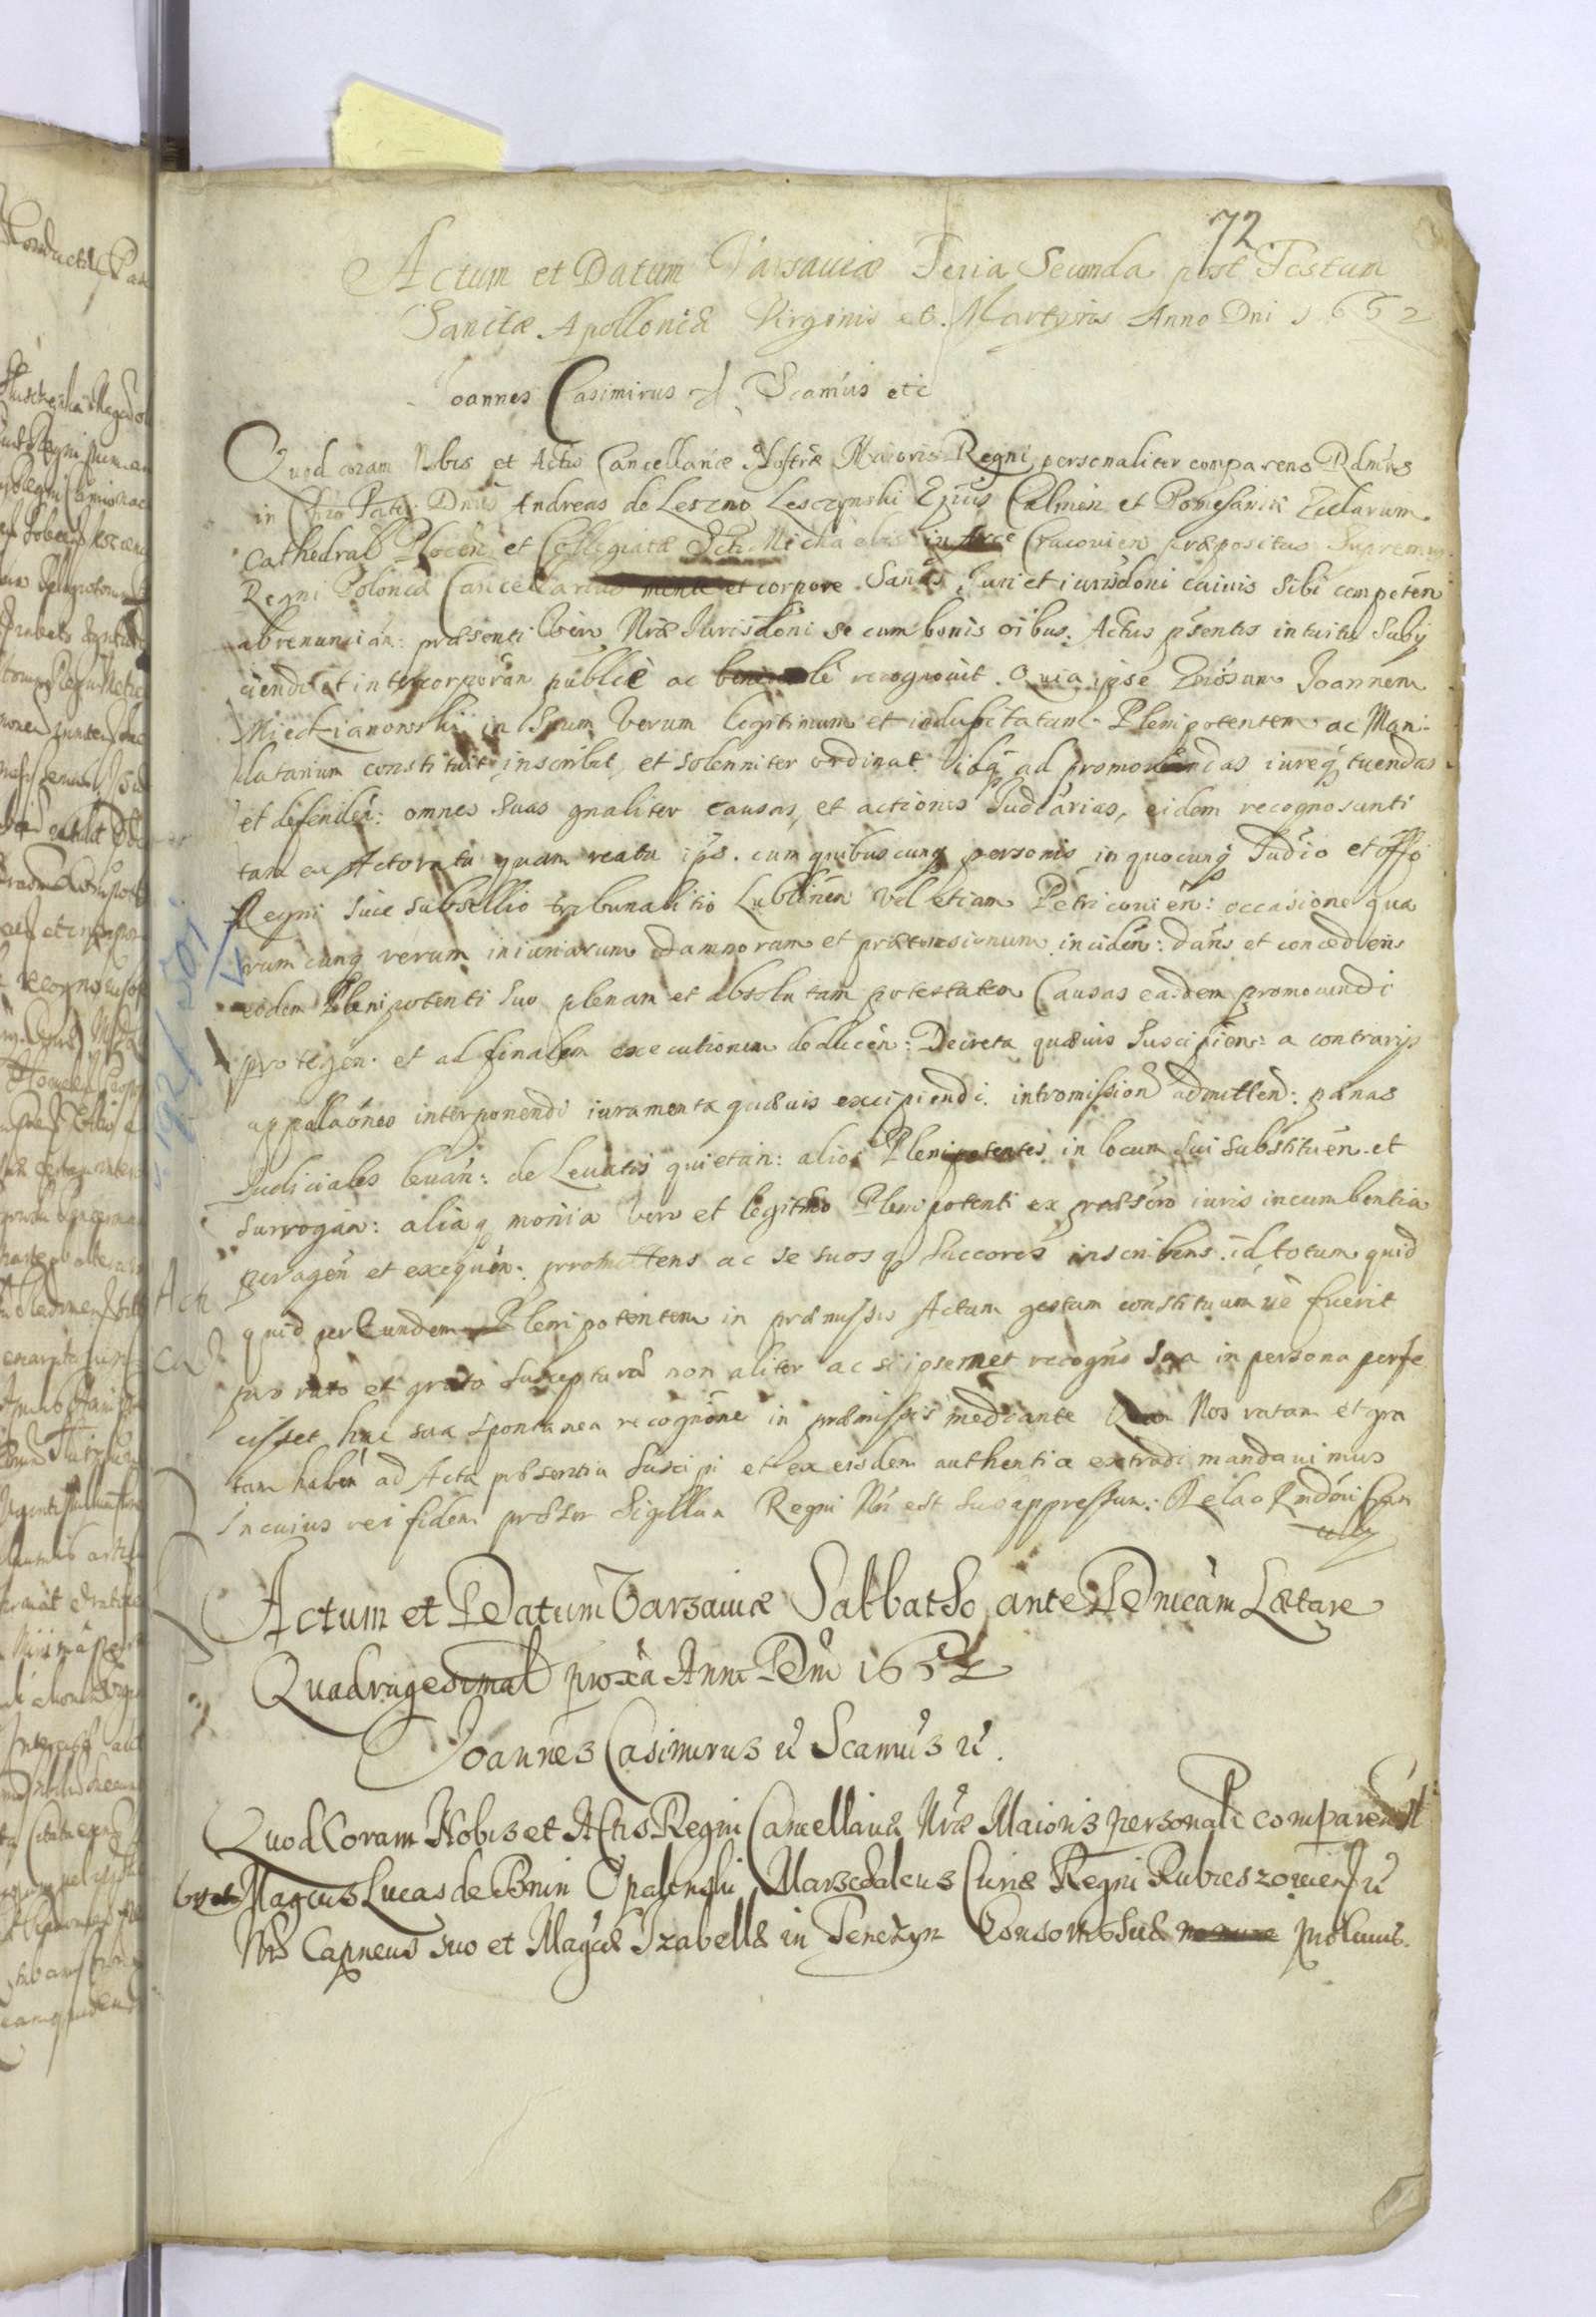 72
Actum et Datum Varsaviæ Feria Secunda post Festum
Sanctæ Apolloniæ Virginis et Martyris Anno Dni 1652
Joannes Casimirus Scamus etc
Quod coram Nobis et Actis Cancellariæ Nostræ Maioris Regni personaliter comparens Rdmus
in Chro Patr Dnus Andreas de Leszno Lesczynski Epus Culmen et Pomesaniæ Ecclarum
Cathedral Plocen et Collegiatæ Scti Michaelis in Arce Cracovien præpositus Supremus
Regni Poloniæ Cancellarius mente et corpore Sanus, Juri et iurisdoni cuivis sibi competen
abrenuncian: præsenti Vero Nræ Jurisdoni se cum bonis oibus. Actus pñtis intuitu Subij
ciendo et incorporan publicè ac recognovit. Quia ipse Gnosum Joannem
Mieckianowski in Suum Verum legitimum et indubitatum Plenipotentem ac Man
datarium constituit inscribit, et solenniter ordinat. ad promovendas iureq tuendas
et defenden: omnes Suas gnaliter causas, et actiones Judiarias, eidem recognoscenti
tam ex Actoratu quam reatu ips. cum quibuscunq personis in quocunq Judicio et offo
Regni sive subsellio tribunalitio Lublinen vel etiam Petricovien: occasione qua
rumcunq rerum iniuriarum damnorum et prætensionum inciden: dans et concedens
eidem Plenipotenti Suo plenam et absolutam potestatem Causas easdem promovendi
protegen. et ad finalem executionem deducen: Decreta quævis Suscipien: a contrarijs
appellaones interponendi iuramenta quævis excipiendi. intromission admitten: pænas
Judiciales levan: de Levatis quietan: alios Plenipotentes in locum Sui Substituen et
Surrogan: aliaq monia vero et legitimo Plenipotenti ex præscripto iuris incumbentia
peragen et exequen: promittens ac se suosq Succores inscribens. id totum quid
quid per Eundem Plenipotentem in præmissis Actum gestum constitutumve fuerit
pro rato et grato suscepturum non aliter ac si ipsemet recognos Sua in persona perfe
cisset hac sua spontanea recognone in præmissis mediante Quam Nos ratam et gra
tam haben ad Acta præsentia Suscipi et ex eisdem authentice extradi mandavimus
In cuius rei fidem Sigillum Regni Nri est Subappressum: Relao Rndmi Can
Actum et Datum Varsaviæ Sabbatho ante Dnicam Lætare
Quadragesimal proxa Anno Dni 1652
Joannes Casimirus Scamus
Quod Coram Nobis et Actis Regni Cancellariæ Nræ Maioris personali comparen
Magcus Lucas de Bnin Opalenski Marschalcus Curiæ Regni Rubieszovien
Nrs Capneus suo et Magcæ Izabellæ in Tenczyn Consortis Suæ